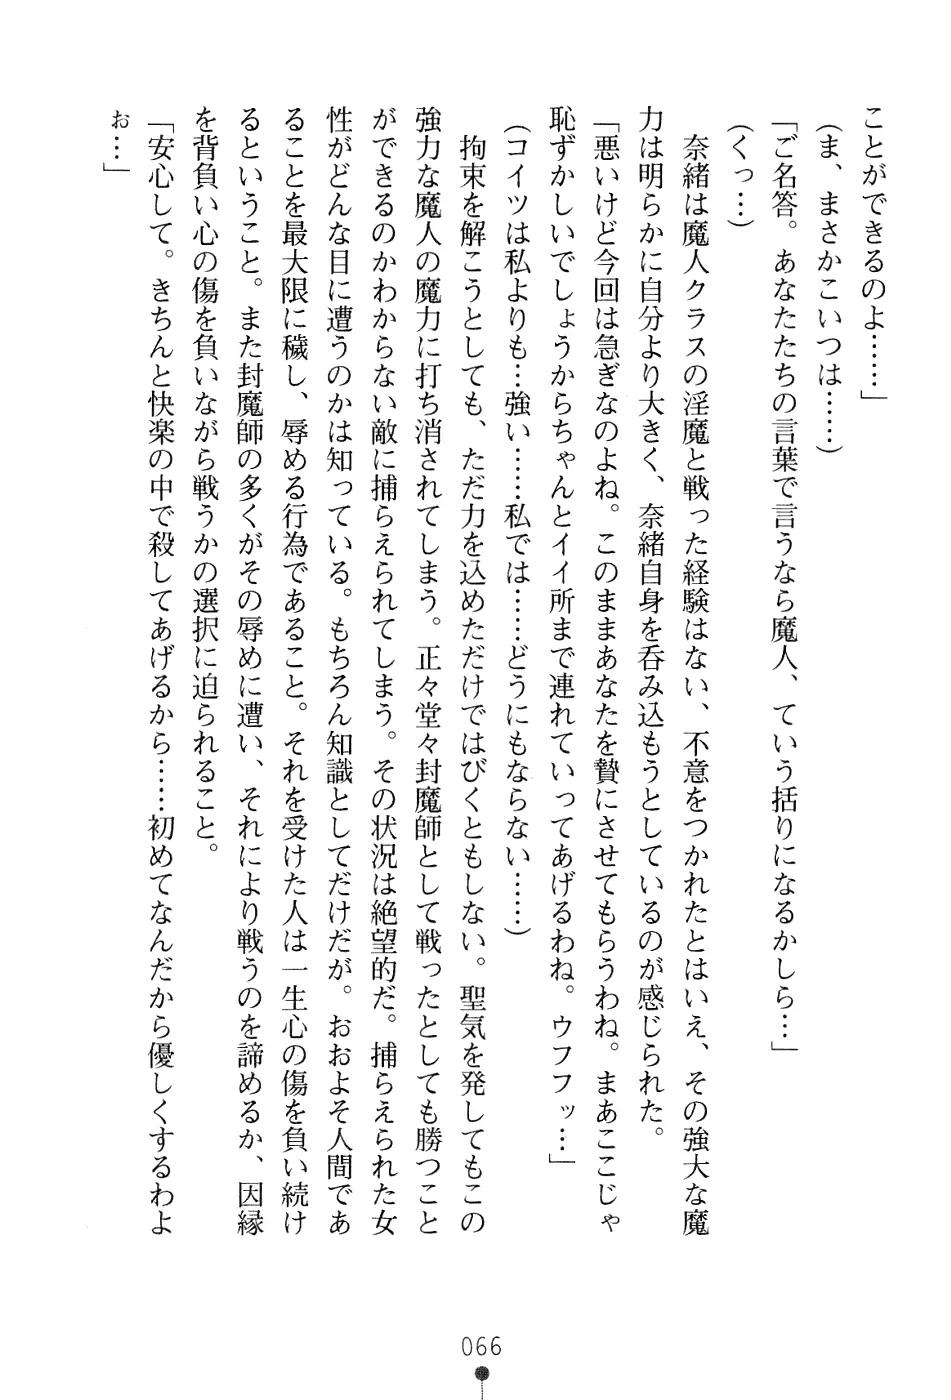 ことができるのよ……」
（ま、まさかこいつは……）
「ご名答。あなたたちの言葉で言うなら魔人、ていう括りになるかしら…」
（くっ…）
　奈緒は魔人クラスの淫魔と戦った経験はない、不意をつかれたとはいえ、その強大な魔
力は明らかに自分より大きく、奈緒自身を呑み込もうとしているのが感じられた。
「悪いけど今回は急ぎなのよね。このままあなたを贄にさせてもらうわね。まあここじゃ
恥ずかしいでしょうからちゃんとイイ所まで連れていってあげるわね。ウフフッ…」
（コイツは私よりも…強い……私では……どうにもならない……）
　拘束を解こうとしても、ただ力を込めただけではびくともしない。聖気を発してもこの
強力な魔人の魔力に打ち消されてしまう。正々堂々封魔師として戦ったとしても勝つこと
ができるのかわからない敵に捕らえられてしまう。その状況は絶望的だ。捕らえられた女
性がどんな目に遭うのかは知っている。もちろん知識としてだけだが。おおよそ人間であ
ることを最大限に穢し、辱める行為であること。それを受けた人は一生心の傷を負い続け
るということ。また封魔師の多くがその辱めに遭い、それにより戦うのを諦めるか、因縁
を背負い心の傷を負いながら戦うかの選択に迫られること。
「安心して。きちんと快楽の中で殺してあげるから……初めてなんだから優しくするわよ
ぉ…」
066